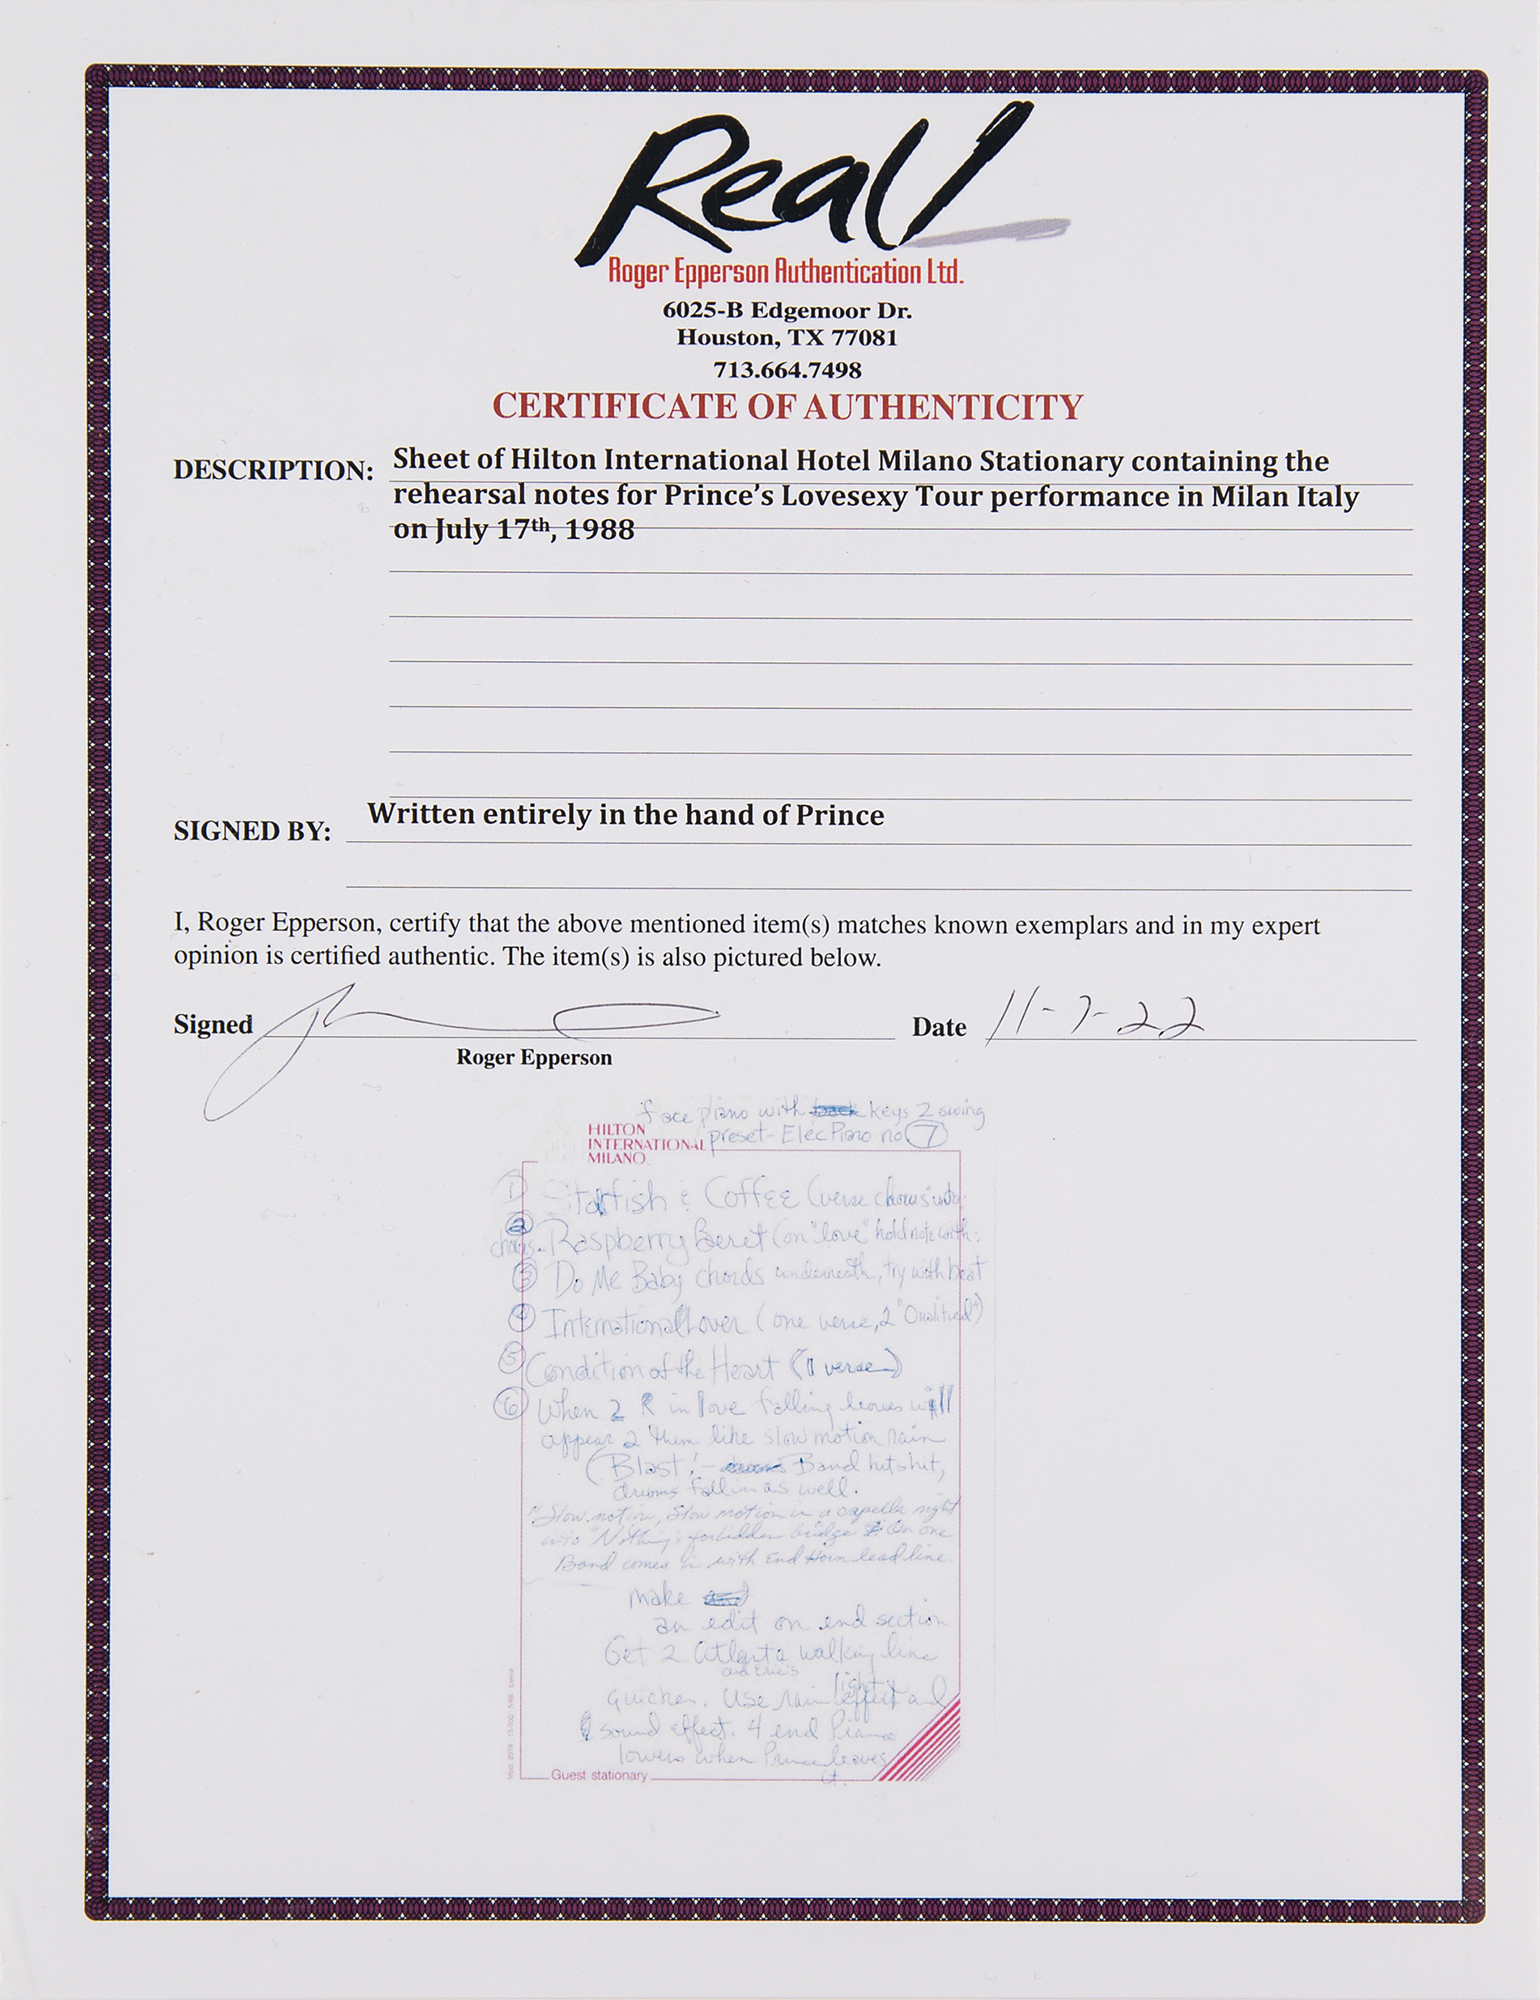 Real
Roger Epperson Authentication Ltd.
6025-B Edgemoor Dr.
Houston, TX 77081
713.664.7498
CERTIFICATE OF AUTHENTICITY
DESCRIPTION: Sheet of Hilton International Hotel Milano Stationary containing the
rehearsal notes for Prince's Lovesexy Tour performance in Milan Italy
on July 17th, 1988
SIGNED BY: Written entirely in the hand of Prince
I, Roger Epperson, certify that the above mentioned item(s) matches known exemplars and in my expert
opinion is certified authentic. The item(s) is also pictured below.
Signed Date 11-7-22
Roger Epperson
face piano with keys 2 swing
preset - Elec Piano no 7
HILTON
INTERNATIONAL
MILANO
1 Starfish & Coffee (verse chorus into
2 Raspberry Beret (on "love" hold note with:
3 Do Me Baby chords underneath, try with beat
4 International Lover (one verse, 2 "Qualified")
5 Condition of the Heart (1 verse)
6 When 2 R in love falling leaves will
appear 2 them like slow motion rain
(Blast! - Band hits hit,
drums fall in as well.
"Slow motion, Slow motion in a capella right
into "Nothing's forbidden bridge On one
Band comes in with End Horn lead line.
make
an edit on end section
Get 2 Atlanta walking line
and Eric's
quicker. Use rain light effect and
sound effect. 4 end Piano
lowers when Prince leaves
it.
Guest stationary